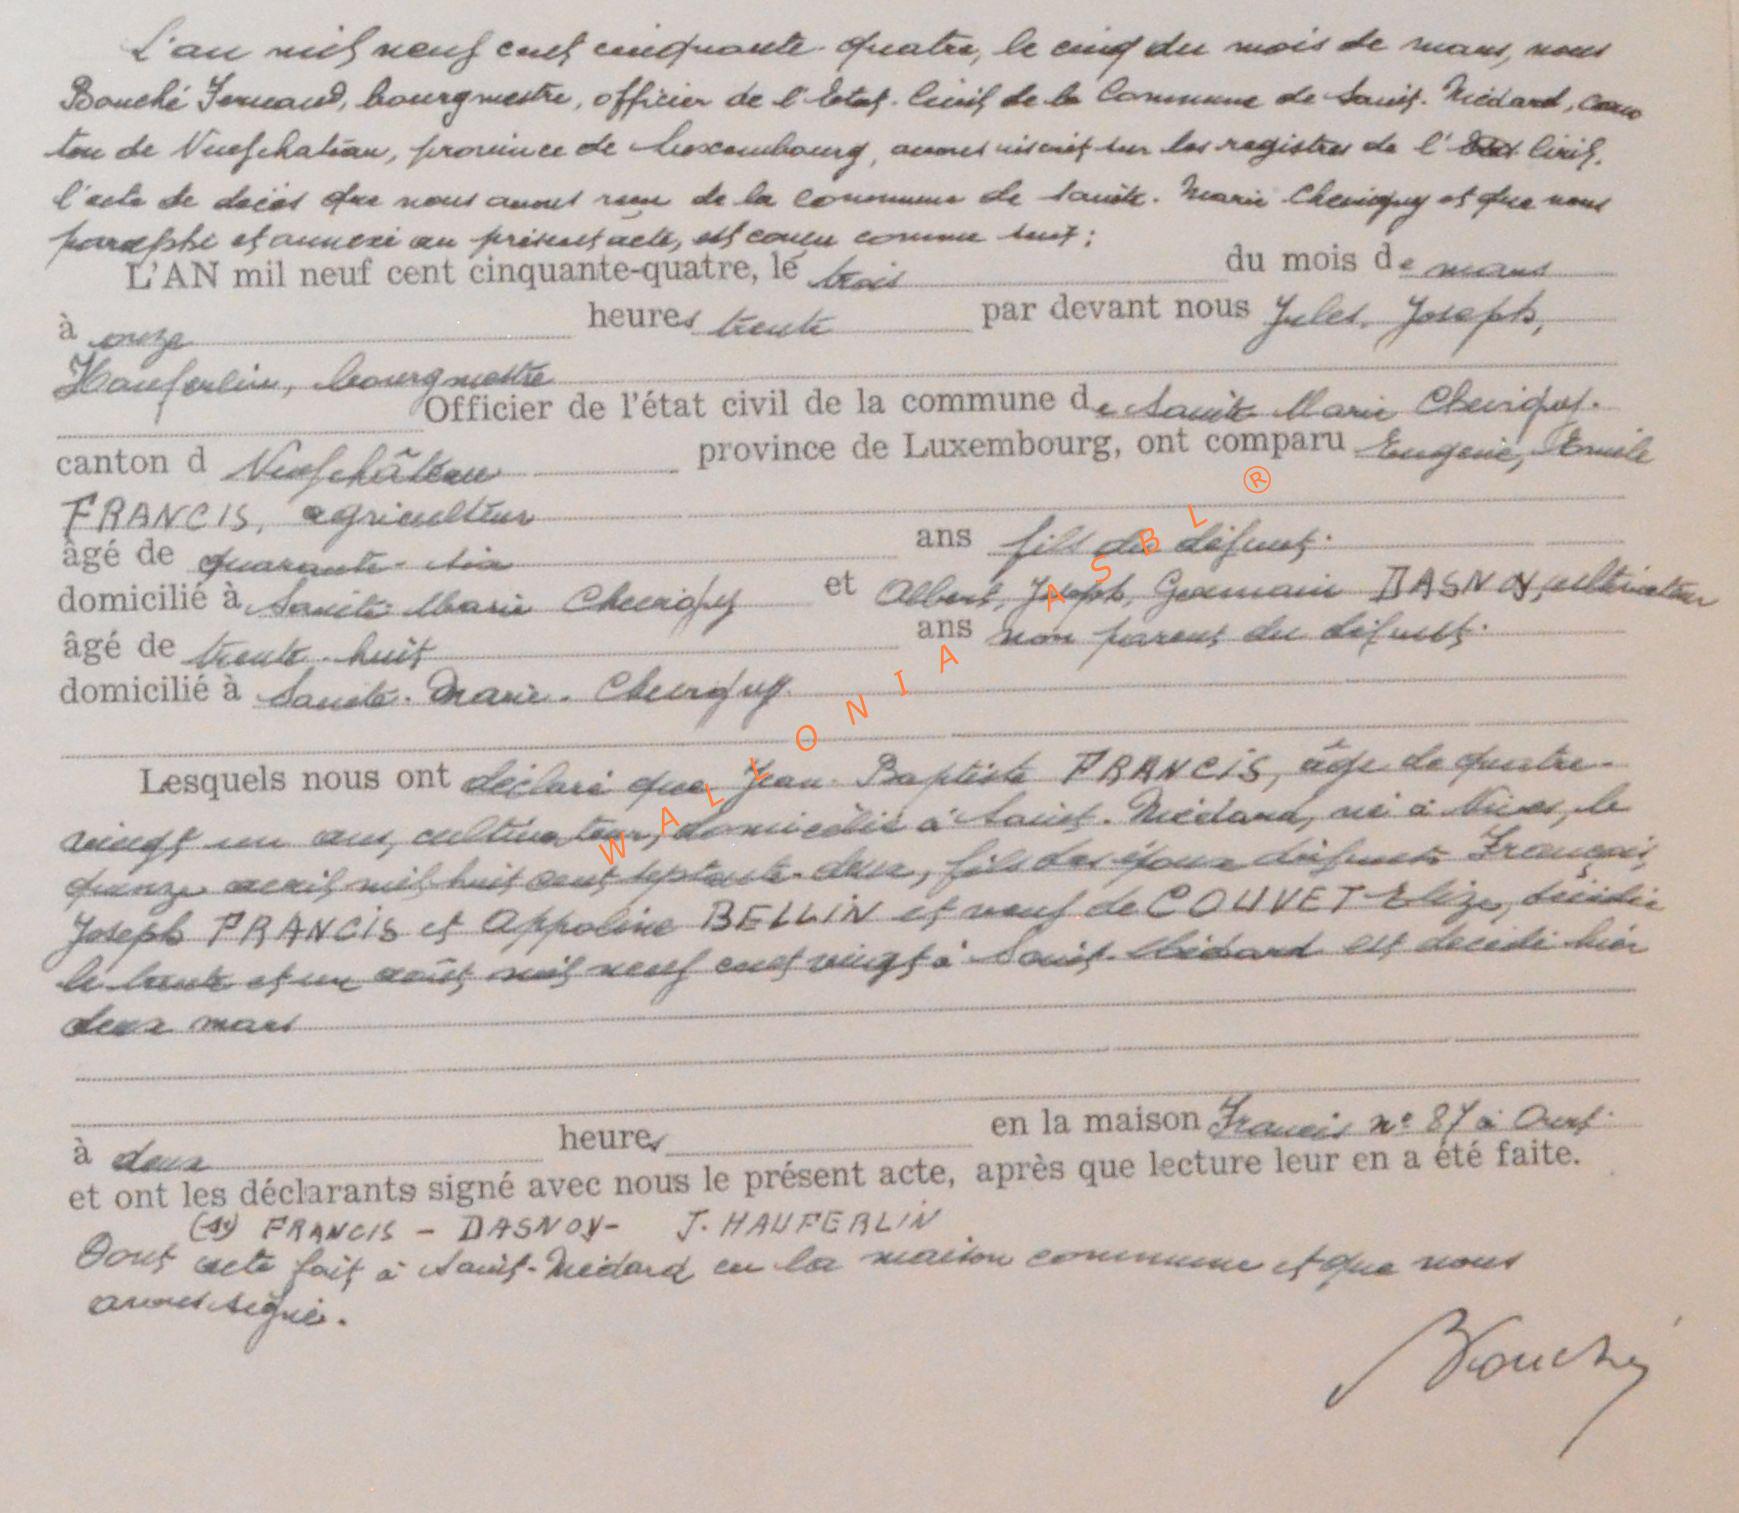 L'an mil neuf cent cinquante-quatre, le cinq du mois de mars, nous
Bouché Fernand, bourgmestre, officier de l'Etat-Civil de la Commune de Saint-Médard, can
ton de Neufchateau, province de Luxembourg, avons inscrit sur les registres de l'Etat Civil,
l'acte de décès que nous avons reçu de la commune de Sainte-Marie Chevigny et que nous
paraphé et annexé au présent acte, est conçu comme suit :
L'AN mil neuf cent cinquante-quatre, le trois du mois de mars
à onze heures trente par devant nous Jules, Joseph,
Hauferlin, bourgmestre
Officier de l'état civil de la commune de Sainte Marie Chevigny.
canton d Neufchâteau province de Luxembourg, ont comparu Eugène, Emile
FRANCIS, agriculteur
âgé de quarante-six ans fils du défunt.
domicilié à Sainte-Marie Chevigny et Albert, Joseph, Germain DASNOY, cultivateur
âgé de trente-huit ans non parent du défunt.
domicilié à Sainte-Marie-Chevigny
Lesquels nous ont déclaré que Jean-Baptiste FRANCIS, âgé de quatre-
vingt un ans, cultivateur, domicilié à Saint-Médard, né à Nives, le
quinze avril mil huit cent septante-deux, fils des époux défunts François,
Joseph FRANCIS et Appoline BELLIN et veuf de COUVET-Elize, décédée
le trente et un août mil neuf cent vingt à Saint-Médard est décédé hier
deux mars
à deux heures en la maison Francis n° 87 à Ourt.
et ont les déclarants signé avec nous le présent acte, après que lecture leur en a été faite.
(sé) FRANCIS - DASNOY- J. HAUFERLIN
Dont acte fait à Saint-Médard en la maison commune et que nous
avons signé.
Bouché
WALLONIA ASBL ®